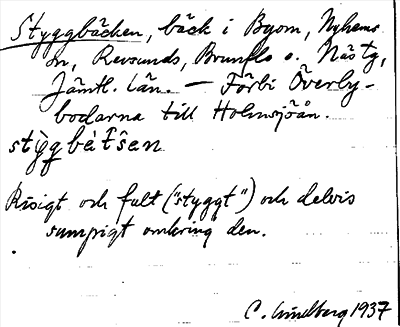 Styggbäcken, bäck i Byom, Nyhems
sn, Revsunds, Brunflo o. Näs tg,
Jämtl. län. — Förbi Överby-
bodarna till Holmsjöån.
Risigt och fult ("styggt") och delvis
sumpigt omkring den.
C. Lindberg 1937